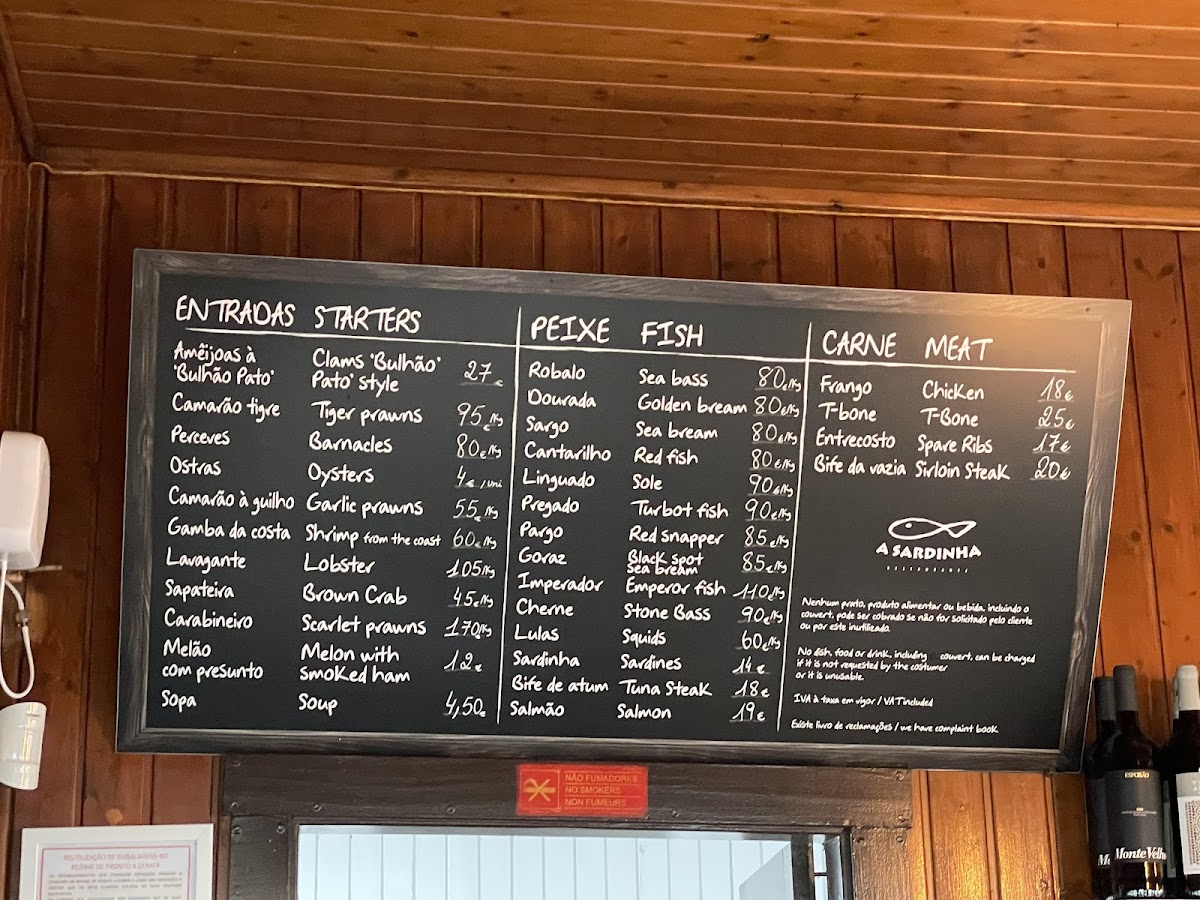 ENTRADAS STARTERS
Amêijoas à 'Bulhão Pato' Clams 'Bulhão' Pato' style 27€
Camarão tigre Tiger prawns 95€/Kg
Perceves Barnacles 80€/Kg
Ostras Oysters 4€/uni
Camarão à guilho Garlic prawns 55€/Kg
Gamba da costa Shrimp from the coast 60€/Kg
Lavagante Lobster 105/Kg
Sapateira Brown Crab 45€/Kg
Carabineiro Scarlet prawns 170/Kg
Melão com presunto Melon with smoked ham 12€
Sopa Soup 4,50€
PEIXE FISH
Robalo Sea bass 80€/Kg
Dourada Golden bream 80€/Kg
Sargo Sea bream 80€/Kg
Cantarilho Red fish 80€/Kg
Linguado Sole 90€/Kg
Pregado Turbot fish 90€/Kg
Pargo Red snapper 85€/Kg
Goraz Black spot sea bream 85€/Kg
Imperador Emperor fish 110€/Kg
Cherne Stone Bass 90€/Kg
Lulas Squids 60€/Kg
Sardinha Sardines 14€
Bife de atum Tuna Steak 18€
Salmão Salmon 19€
CARNE MEAT
Frango Chicken 18€
T-bone T-Bone 25€
Entrecosto Spare Ribs 17€
Bife da vazia Sirloin Steak 20€
A SARDINHA
RESTAURANTE
Nenhum prato, produto alimentar ou bebida, incluindo o
couvert, pode ser cobrado se não for solicitado pelo cliente
ou por este inutilizado.
No dish, food or drink, including couvert, can be charged
if it is not requested by the costumer
or it is unusable.
IVA à taxa em vigor / VAT included
Existe livro de reclamações / we have complaint book
NÃO FUMADORES
NO SMOKERS
NON FUMEURS
REUTILIZAÇÃO DE EMBALAGENS NO
REGIME DE PRONTO A COMER
ESPORÃO
Monte Velho